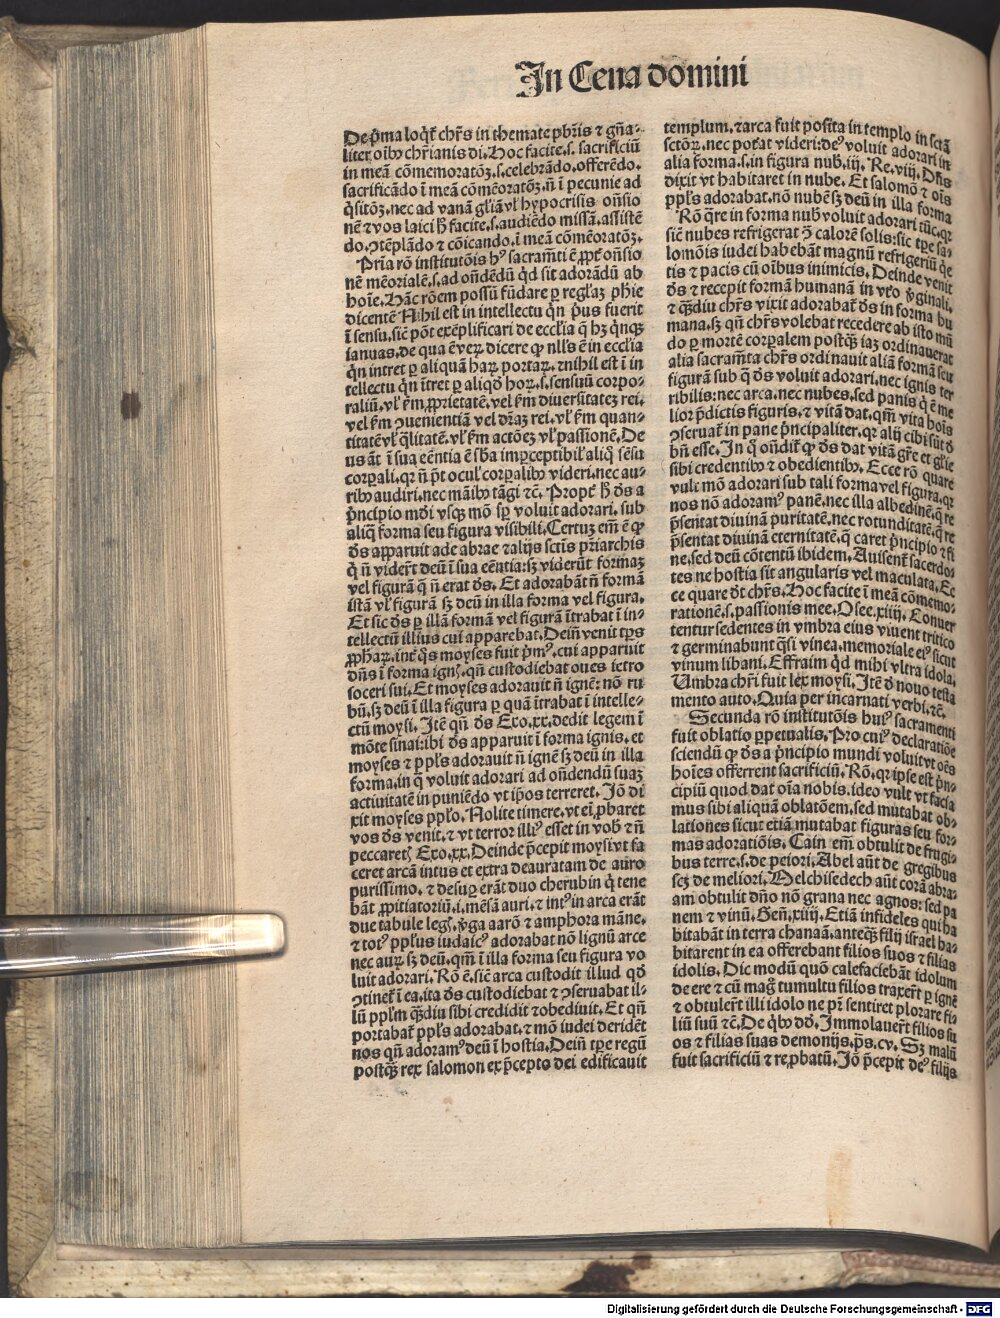 In Cena domini
De p̄ma loq̄t̄ chr̄s in themate pb̄ris ⁊ gn̄a-
liter oīb⁹ chr̄ianis di. Hoc facite .s. sacrificiū
in meā cōmemoratōꝫ .s. celebrādo. offerēdo.
sacrificādo ī meā cōmēoratōꝫ. n̄ ī pecunie ad
q̄sitōꝫ. nec ad vanā gl̄iā vl̓ hypocrisis on̄sio
nē ⁊ vos laici h̄ facite .s. audiēdo missā. assistē
do. ꝯtēplādo ⁊ cōicando. ī meā cōmēoratōꝫ.
Prīa rō institutōis h⁹ sacram̄ti ē ꝓpt̄ on̄sio
nē mēorialē .s. ad on̄dēdū q̄d sit adorādū ab
hoīe. Hāc rōem possū fūdare ꝑ regl̓aꝫ ph̄ie
dicentē Nihil est in intellectu q̄n p̄us fuerit
ī sensu. sic̄ pōt exēplificari de eccl̄ia q̄ hꝫ q̄nqꝫ
ianuas. de qua ē veꝝ dicere ꝙ nll̓s ē in eccl̄ia
q̄n intret ꝑ aliquā haꝝ portaꝝ. ⁊ nihil est ī in
tellectu q̄n ītret ꝑ aliqd̄ hoꝝ .s. sensuū corpo-
raliū. vl̓ ẜm ꝓprietatē. vel ẜm diuersitateꝫ rei.
vel ẜm ꝯuenientiā vel dr̄aꝫ rei. vl̓ ẜm quan-
titatē vl̓ q̄litatē. vl̓ ẜm actōeꝫ vl̓ passionē. De
us āt ī sua eēntia ē sb̄a imꝑceptibil̓ aliq̄ sēsu
corꝑali. qꝛ n̄ p̄t ocul̓ corꝑalib⁹ videri. nec au-
rib⁹ audiri. nec māib⁹ tāgi ⁊c̄. Propt̄ h̄ d̄s a
p̄ncipio mūdi vsqꝫ mō sp̄ voluit adorari. sub
aliq̄ forma seu figura visibili. Certuꝫ em̄ ē ꝙ
d̄s apparuit ade abrae ⁊ alijs sctīs pr̄iarchis
q̄ n̄ vider̄t deū ī sua eēntia: sꝫ viderūt formaꝫ
vel figurā q̄ n̄ erat d̄s. Et adorabāt n̄ formā
istā vl̓ figurā sꝫ deū in illa forma vel figura.
Et sic d̄s ꝑ illā formā vel figurā ītrabat ī in-
tellectū illius cui apparebat. Dein̄ venit tꝑs
ꝓphaꝝ. int̄ q̄s moyses fuit p̄m⁹. cui apparuit
dn̄s ī forma ignꝭ. qn̄ custodiebat oues ietro
soceri sui. Et moyses adorauit n̄ ignē: nō ru
bū. sꝫ deū ī illa figura ꝑ quā ītrabat ī intelle-
ctū moysi. Itē qn̄ d̄s Exo. xx. dedit legem ī
mōte sinai: ibi d̄s apparuit ī forma ignis. et
moyses ⁊ ppl̓s adorauit n̄ ignē sꝫ deū in illa
forma. in q̄ voluit adorari ad on̄dendū suaꝫ
actiuitatē in puniēdo vt ip̄os terreret. Iō di
xit moyses ppl̓o. Nolite timere. vt eī ꝓbaret
vos d̄s venit. ⁊ vt terror illi⁹ esset in vob̄ ⁊ n̄
peccaretꝭ Exo. xx. Deinde p̄cepit moysi vt fa
ceret arcā intus et extra deauratam de auro
purissimo. ⁊ desuꝑ erāt duo cherubin q̄ tene
bāt ꝓpitiatoriū .i. mēsā auri. ⁊ int⁹ in arca erāt
due tabule legꝭ. v̄ga aarō ⁊ amphora māne.
⁊ tot⁹ pplūs iudaic⁹ adorabat nō lignū arce
nec auꝝ sꝫ deū. qm̄ ī illa forma seu figura vo
luit adorari. Rō ē. sic̄ arca custodit illud qd̄
ꝯtinet̄ ī ea. ita d̄s custodiebat ⁊ ꝯseruabat il-
lū pplm̄ q̄diu sibi credidit ⁊ obediuit. Et qn̄
portabat̄ ppl̓s adorabat. ⁊ mō iudei deridēt
nos qn̄ adoram⁹ deū ī hostia. Dein̄ tꝑe regū
postq̄ꝫ rex salomon ex p̄cepto dei edificauit
templum. ⁊ arca fuit posita in templo in sctā
sctōꝝ. nec potat̄ videri: de⁹ voluit adorari in
alia forma .s. in figura nub̄. iij. Re. viij. Dn̄s
dixit vt habitaret in nube. Et salomō ⁊ oīs
ppl̓s adorabat. nō nubē sꝫ deū in illa forma
Rō q̄re in forma nub̄ voluit adorari tūc. qꝛ
sic̄ nubes refrigerat ꝯ calorē solis: sic tꝑe sa-
lomōis iudei habebāt magnū refrigeriū q̄e
tis ⁊ pacis cū oībus inimicis. Deinde venit
d̄s ⁊ recepit formā humanā in vt̄o v̄ginali.
⁊ q̄ꝫdiu chr̄s vixit adorabat̄ d̄s in forma hu
mana. sꝫ qn̄ chr̄s volebat recedere ab isto mū
do ꝑ mortē corꝑalem postq̄ꝫ iaꝫ ordinauerat
alia sacram̄ta chr̄s ordinauit aliā formā seu
figurā sub q̄ d̄s voluit adorari. nec ignis ter
ribilis: nec arca. nec nubes. sed panis q̄ ē me
lior p̄dictis figuris. ⁊ vitā dat. qm̄ vita hoīs
ꝯseruat̄ in pane p̄ncipaliter. qꝛ alij cibi sūt d̄
bn̄ esse. In q̄ on̄dit̄ ꝙ d̄s dat vitā gr̄e et gl̓ie
sibi credentib⁹ ⁊ obedientib⁹. Ecce rō quare
vult mō adorari sub tali forma vel figura. qꝛ
nos nō adoram⁹ panē. nec illa albedinē. q̄ re
p̄sentat diuinā puritatē. nec rotunditatē. q̄ re
p̄sentat diuinā eternitatē. q̄ caret p̄ncipio ⁊ fi
ne. sed deū cōtentū ibidem. Auisent̄ sacerdo-
tes ne hostia sit angularis vel maculata. Ec
ce quare dt̄ chr̄s. Hoc facite ī meā cōmemo-
rationē .s. passionis mee. Osee. xiiij. Conuer
tentur sedentes in vmbra eius viuent tritico
⁊ germinabunt q̄si vinea. memoriale ei⁹ sicut
vinum libani. Effraim q̄d mihi vltra idola.
Umbra chr̄i fuit lex moysi. Itē d̄ nouo testa
mento auto. Quia per incarnati verbi. ⁊c̄.
Secunda rō institutōis hui⁹ sacramenti
fuit oblatio ꝑpetualis. Pro cui⁹ declaratiōe
sciendū ꝙ d̄s a p̄ncipio mundi voluit vt oēs
hoīes offerrent sacrificiū. Rō. qꝛ ipse est p̄n-
cipiū quod dat oīa nobis. ideo vult vt facia
mus sibi aliquā oblatōem. sed mutabat ob-
lationes sicut etiā mutabat figuras seu for-
mas adoratiōis. Cain em̄ obtulit de frugi-
bus terre .s. de peiori. Abel aūt de gregibus
scꝫ de meliori. Melchisedech aūt corā abra-
am obtulit dn̄o nō grana nec agnos: sed pa
nem ⁊ vinū. Gen̄. xiiij. Etiā infideles qui ha
bitabāt in terra chanaā. anteq̄ꝫ filij israel ha-
bitarent in ea offerebant filios suos ⁊ filias
idolis. Dic modū quō calefaciebāt idolum
de ere ⁊ cū mag⁹ tumultu filios traxer̄t ꝑ ignē
⁊ obtuler̄t illi idolo ne pr̄ sentiret plorare fi-
liū suū ⁊c̄. De q̄b⁹ dd̄. Immolauer̄t filios su
os ⁊ filias suas demonijs. p̄s. cv. Sꝫ malū
fuit sacrificiū ⁊ reꝓbatū. Iō p̄cepit de⁹ filijs
Digitalisierung gefördert durch die Deutsche Forschungsgemeinschaft - DFG